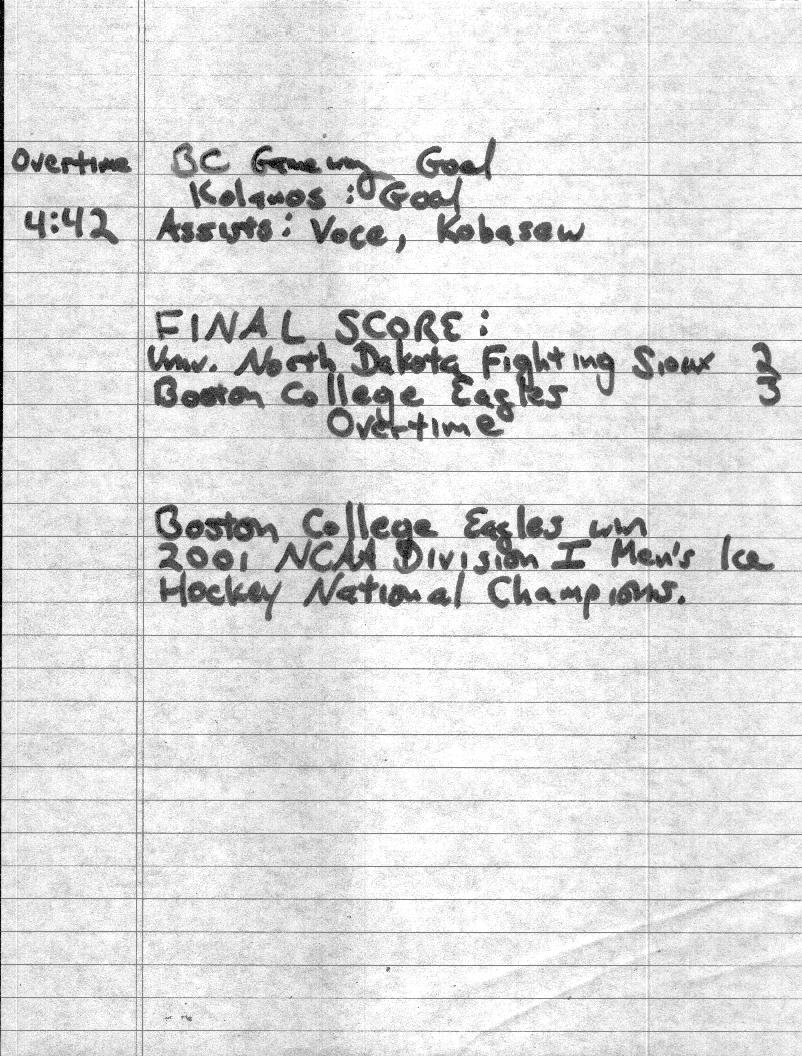 Overtime BC Game wng Goal
Kolanos : Goal
4:42 Assists: Voce, Kobasew
FINAL SCORE:
Univ. North Dakota Fighting Sioux 2
Boston College Eagles 3
Overtime
Boston College Eagles win
2001 NCAA Division I Men's Ice
Hockey National Champions.